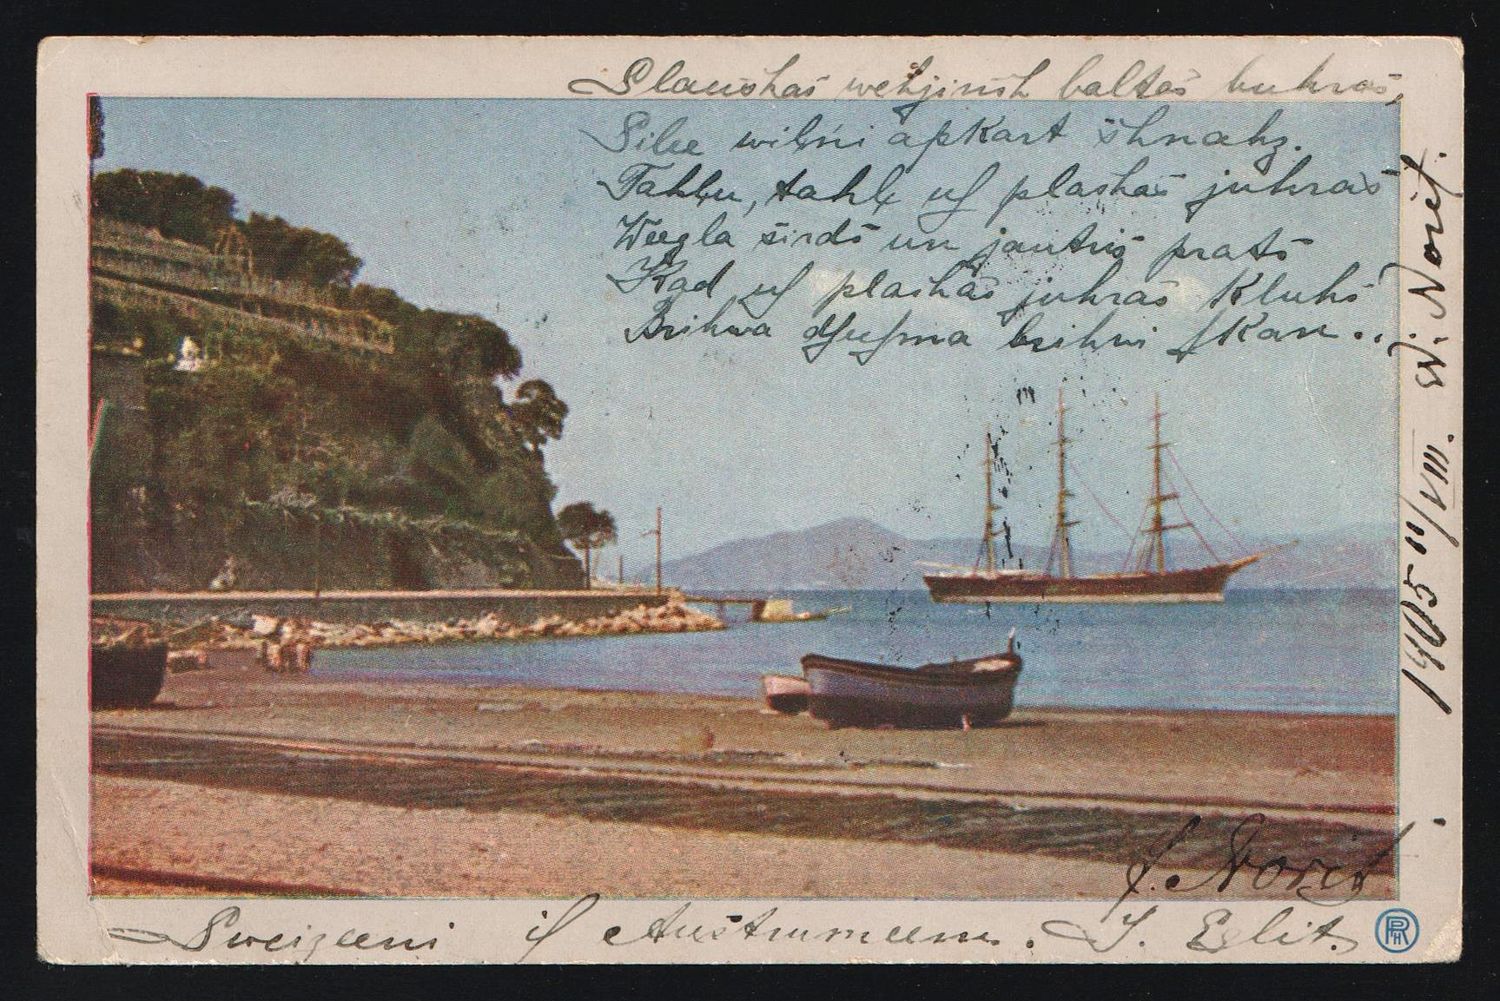 wehjinsh baltas buhras,
wilni apkart shnahz.
Tahlu, tahl uſ plashas juhras
Weegla sirds un jautris prats
Kad uſ plashas juhras kluhs
Brihwa dſuſma brihwi ſkan ..
1905 11/VIII. W. Norit.
J. Norit
Sweizeeni iſ Austrumeem. J. Eglit.